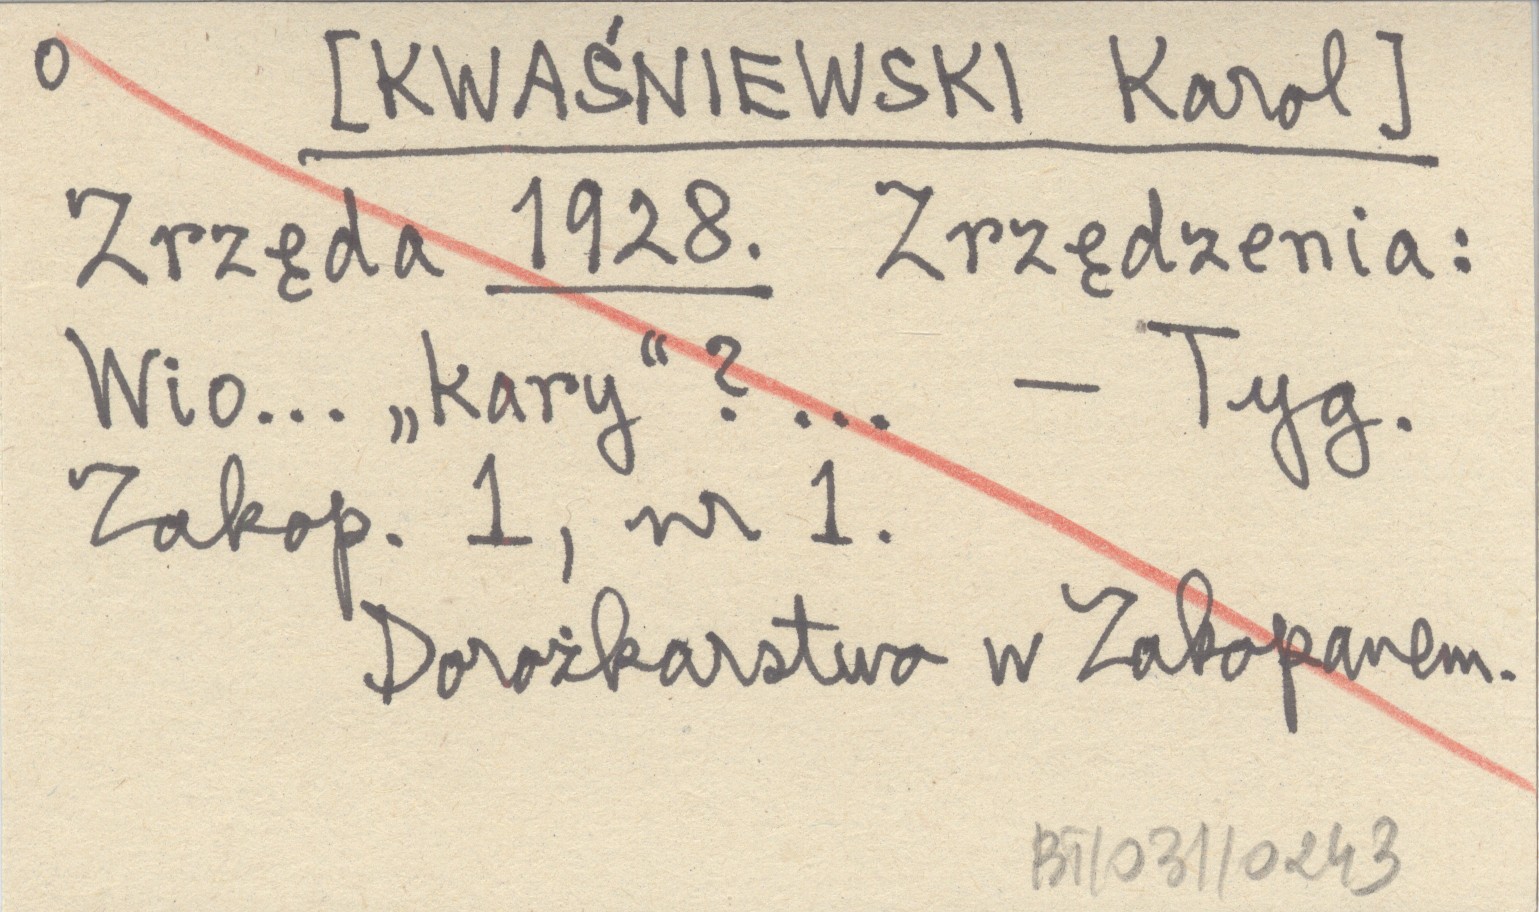 o [KWAŚNIEWSKI Karol]
Zrzęda 1928. Zrzędzenia:
Wio... „kary“? ... — Tyg.
Zakop. 1, nr 1.
Dorożkarstwo w Zakopanem.
BT/031/0243